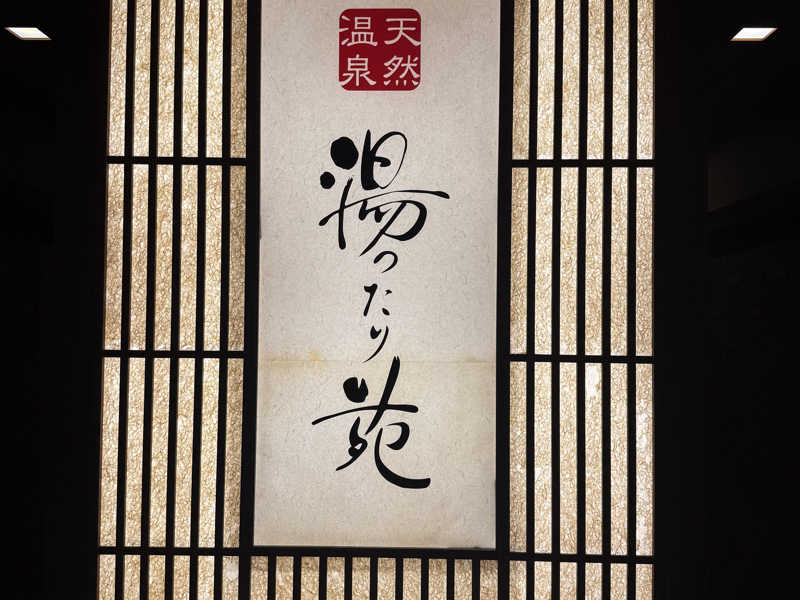 天然
温泉
湯ったり苑